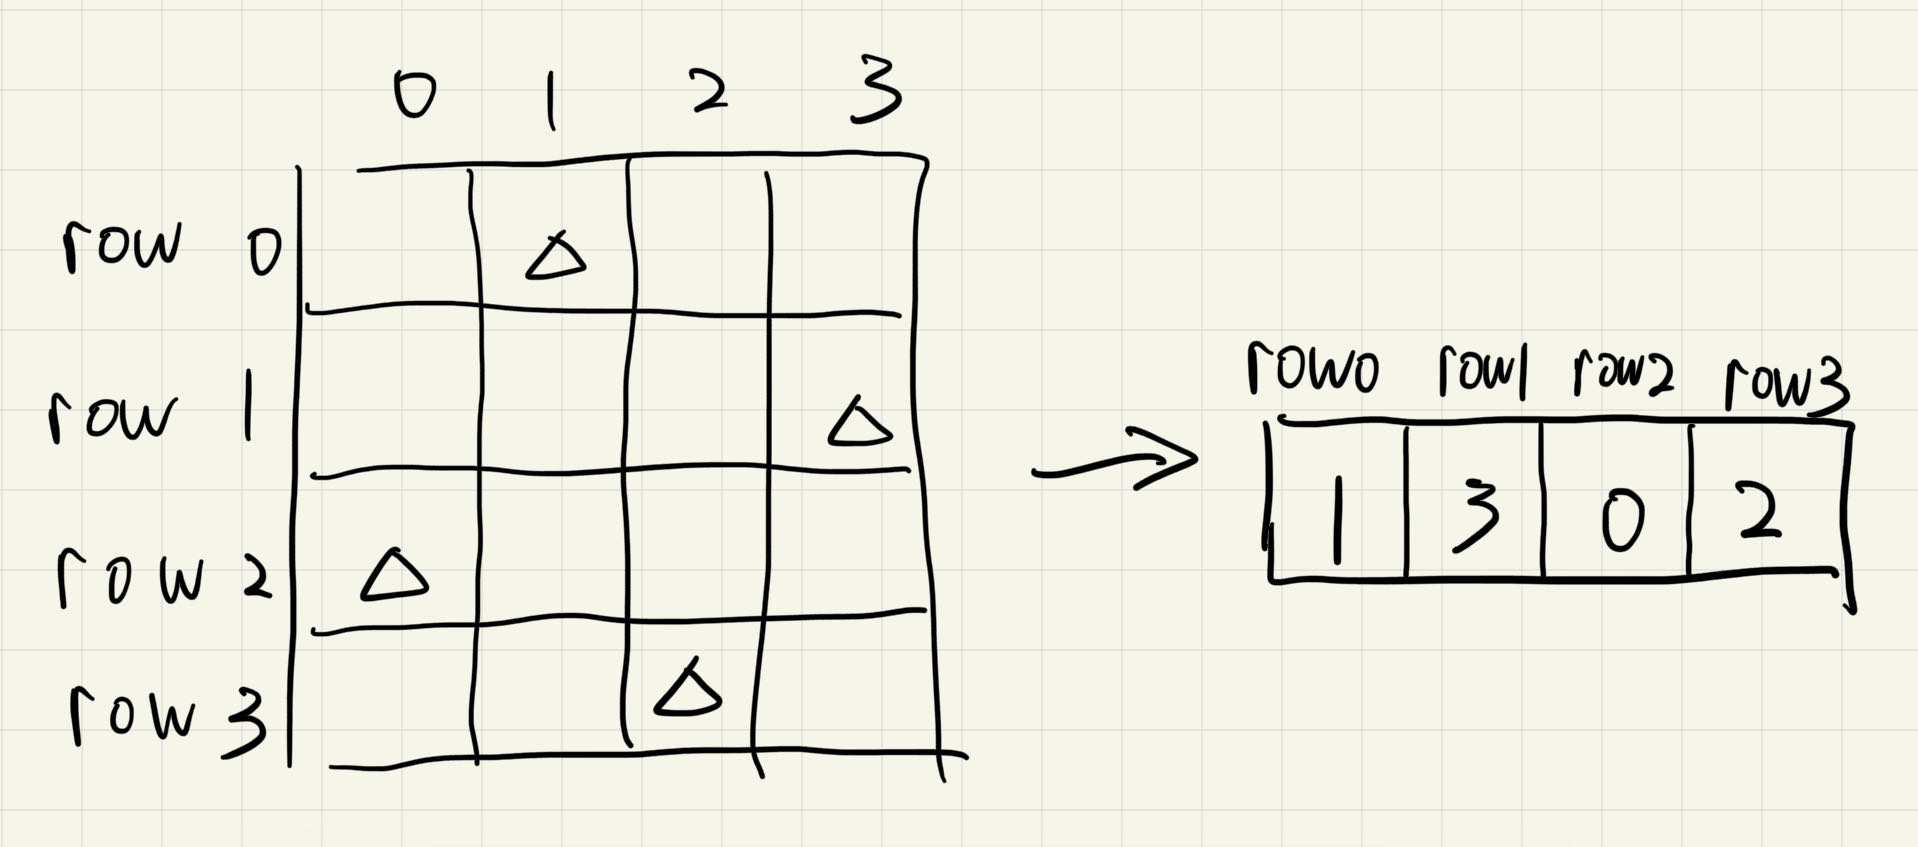 0 1 2 3
row 0
row 1
row 2
row 3
row0 row1 row2 row3
1 3 0 2